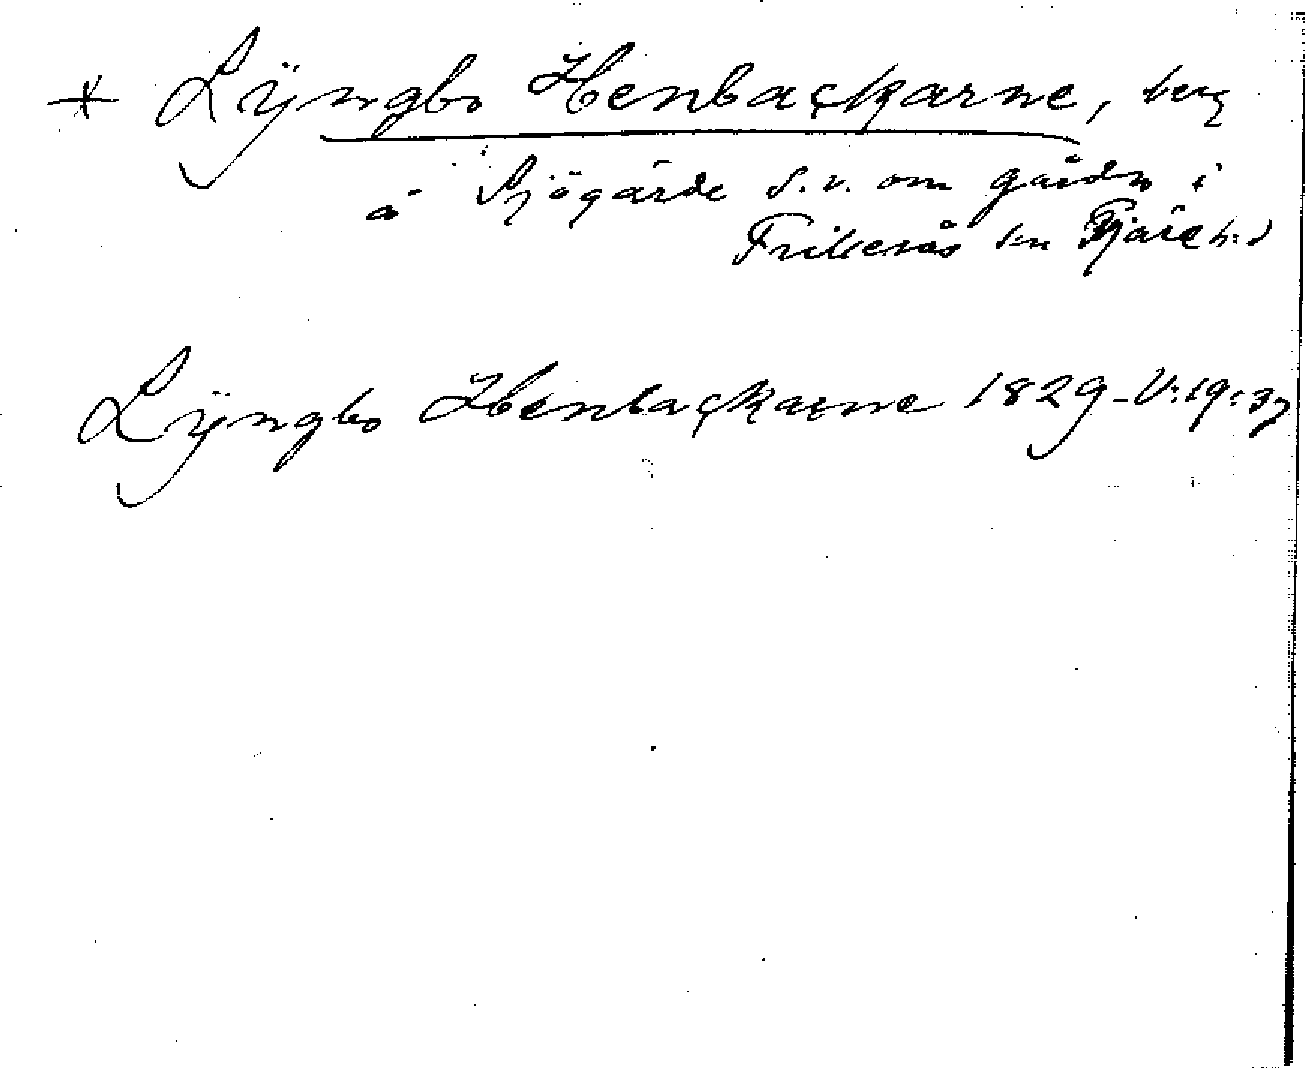 + Lÿngbo Henbackarne, berg
å Sjögärde S.v. om gården i
Frillesås sn Fjäre hd
Lÿngbo Henbackarne 1829-V:19:37